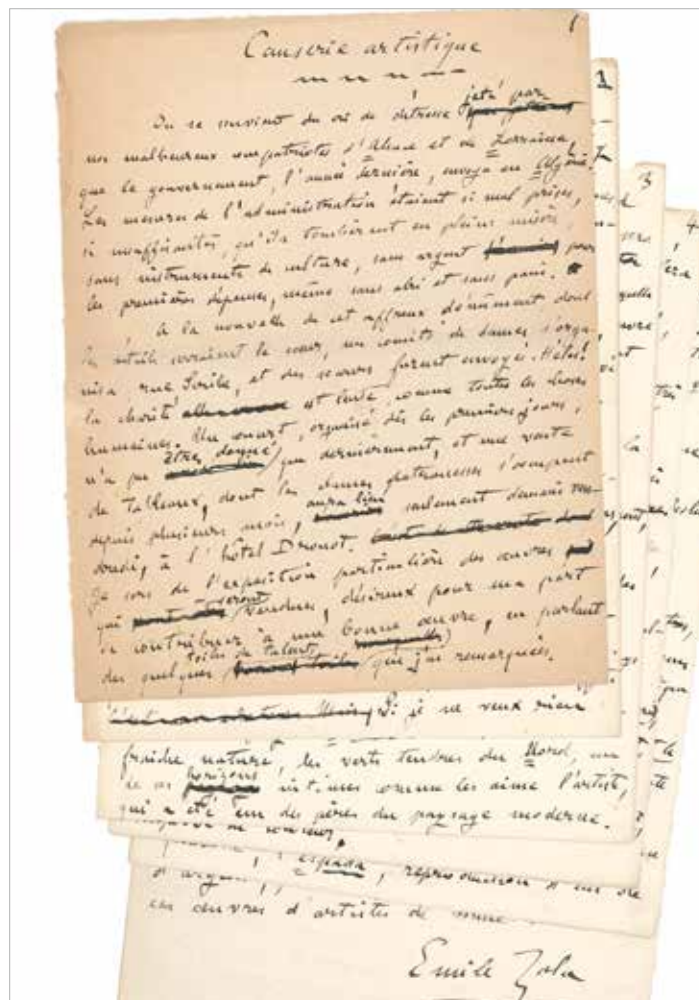 1
Causerie artistique
On se souvient du cri de détresse jeté par
nos malheureux compatriotes d'Alsace et de Lorraine,
que le gouvernement, l'année dernière, envoya en Algérie.
Les mesures de l'administration étaient si mal prises,
si insuffisantes, qu'ils tombèrent en pleine misère,
sans instruments de culture, sans argent pour
les premières dépenses, même sans abri et sans pain.
A la nouvelle de cet affreux dénûment dont
les détails navraient le cœur, un comité de dames s'orga-
nisa rue Scribe, et des secours furent envoyés. Hélas!
la charité est lente, comme toutes les choses
humaines. Un concert, organisé dès les premiers jours,
n'a pu être donné que dernièrement, et une vente
de tableaux, dont les dames patronnesses s'occupent
depuis plusieurs mois, aura lieu seulement demain ven-
dredi, à l'hôtel Drouot.
Je sors de l'exposition particulière des œuvres
qui seront vendues, désireux pour ma part
de contribuer à une bonne œuvre, en parlant
des quelques toiles de talent que j'ai remarquées.
1
3
4
Si je ne veux rien
fraîche nature, les verts tendres du Nord, un
de ces horizons intimes comme les aime l'artiste,
qui a été l'un des pères du paysage moderne.
espada, reproduction
d'argent,
ces œuvres d'artistes de
Emile Zola